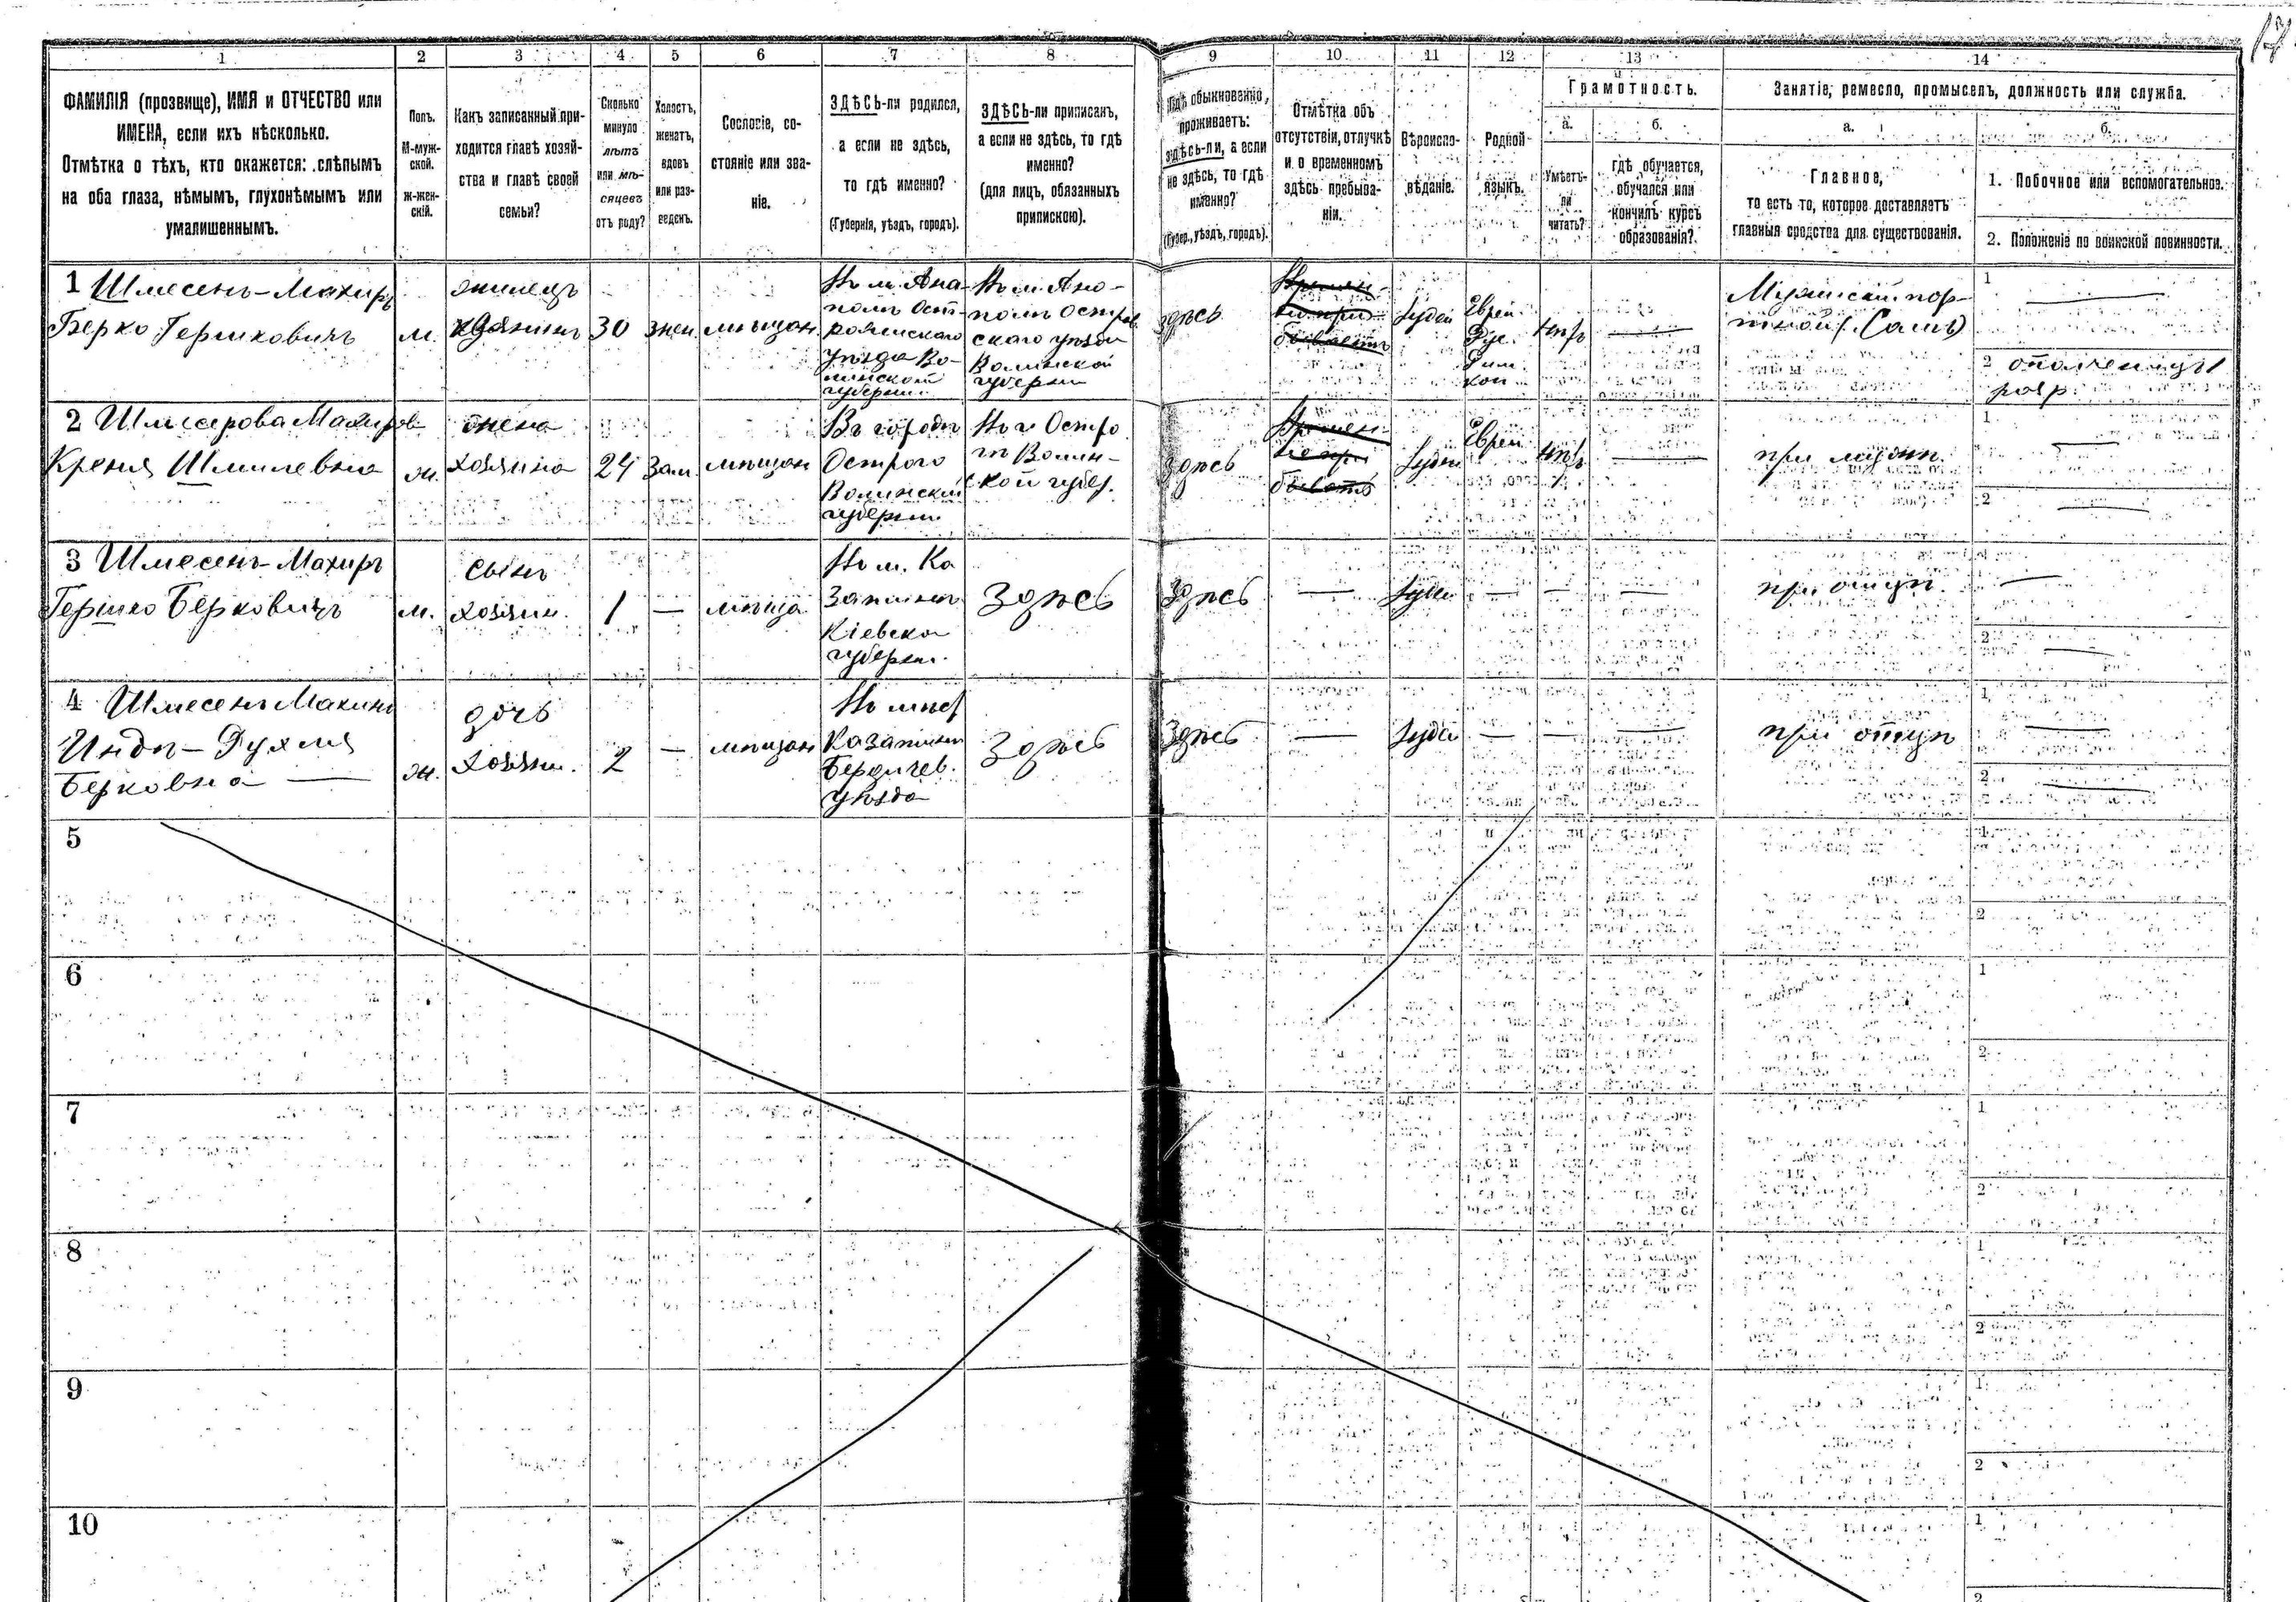 1 2 3 4 5 6 7 8 9 10 11 12 13 14
ФАМИЛІЯ (прозвище), ИМЯ и ОТЧЕСТВО или
ИМЕНА, если ихъ нѣсколько.
Отмѣтка о тѣхъ, кто окажется: слѣпымъ
на оба глаза, нѣмымъ, глухонѣмымъ или
умалишеннымъ.
Полъ.
М-муж-
ской.
Ж-жен-
скій.
Какъ записанный при-
ходится главѣ хозяй-
ства и главѣ своей
семьи?
Сколько
минуло
лѣтъ
или мѣ-
сяцевъ
отъ роду?
Холостъ,
женатъ,
вдовъ
или раз-
веденъ.
Сословіе, со-
стояніе или зва-
ніе.
ЗДѢСЬ-ли родился,
а если не здѣсь,
то гдѣ именно?
(Губернія, уѣздъ, городъ).
ЗДѢСЬ-ли приписанъ,
а если не здѣсь, то гдѣ
именно?
(для лицъ, обязанныхъ
припискою).
Гдѣ обыкновенно
проживаетъ:
здѣсь-ли, а если
не здѣсь, то гдѣ
именно?
(Губер., уѣздъ, городъ).
Отмѣтка объ
отсутствіи, отлучкѣ
и о временномъ
здѣсь пребыва-
ніи.
Вѣроиспо-
вѣданіе.
Родной
языкъ.
Грамотность.
а.
Умѣетъ-
ли
читать?
б.
гдѣ обучается,
обучался или
кончилъ курсъ
образованія?
Занятіе, ремесло, промыселъ, должность или служба.
а.
Главное,
то есть то, которое доставляетъ
главныя средства для существованія.
б.
1. Побочное или вспомогательное.
2. Положеніе по воинской повинности.
1 Шмесенъ-Махиръ
Берко Гершковичъ
м.
30
жен.
мѣщан
Въ м. Ана-
полъ Ост-
рожскаго
уѣзда Во-
линской
губерни.
Въ м. Ано-
полъ Остров
скаго уѣзда
Волинской
губерни
здѣсь
Времен-
но при
бываетъ
Іудей
Еврей
нѣтъ
Мужнскій пор-
тной (Самъ)
1
2 ополченицъ 1
разр.
2
Креня Шмилевна
ж.
жена
хозяина
24
Зам.
мѣщан
Въ городѣ
Острого
Волинский
губерни
Въ г. Остро
гѣ Волин-
ской губер.
здѣсь
Времен
но при
бываетъ
Іудей
Еврей
нѣтъ
при мужѣ.
1
2
3 Шмесенъ-Махиръ
Гершко Берковичъ
м.
сынъ
хозяин.
1
—
мѣща
Въ м. Ка
затинѣ
Кіевска
губерни.
Здѣсь
Здѣсь
—
Іудей
— — —
при отцѣ.
1
2
4 Шмесенъ Махинъ
Берковна —
ж.
дочь
хозяин.
2
—
мѣщан
Въ мѣст
Казатинѣ
Бердичев.
уѣзда
Здѣсь
Здѣсь
—
Іудей
— — —
при отцѣ
1
2
5
1
2
6
1
2
7
1
2
8
1
2
9
1
2
10
1
2